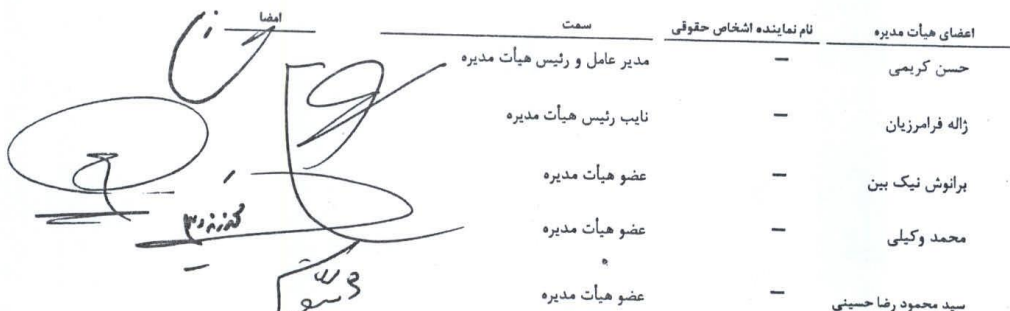 اعضای هیأت مدیره نام نماینده اشخاص حقوقی سمت امضا
حسن کریمی – مدیر عامل و رئیس هیأت مدیره
ژاله فرامرزیان – نایب رئیس هیأت مدیره
برانوش نیک بین – عضو هیأت مدیره
محمد وکیلی – عضو هیأت مدیره
سید محمود رضا حسینی – عضو هیأت مدیره